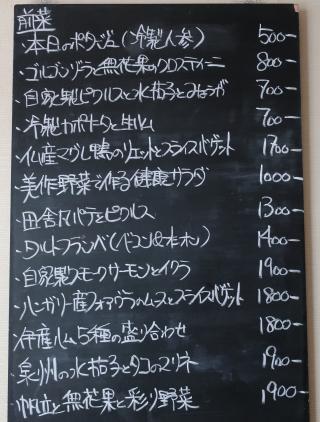 前菜
・本日のポタージュ(冷製人参) 500-
・ゴルゴンゾラと無花果のクロスティーニ 800-
・自家製ピクルスと水茄子とみょうが 700-
・冷製カポナータと生ハム 700-
・仏産マグレ鴨のリエットとスライスバゲット 1700-
・美作野菜で作る健康サラダ 1000-
・田舎風パテとピクルス 1300-
・タルトフランベ(ベコン&オニオン) 1400-
・自家製スモークサーモンとイクラ 1900-
・ハンガリー産フォアグラのムースとスライスバゲット 1800-
・伊産ハム5種の盛り合わせ 1800-
・泉州の水茄子とタコのマリネ 1900-
・帆立と無花果と彩り野菜 1,900-